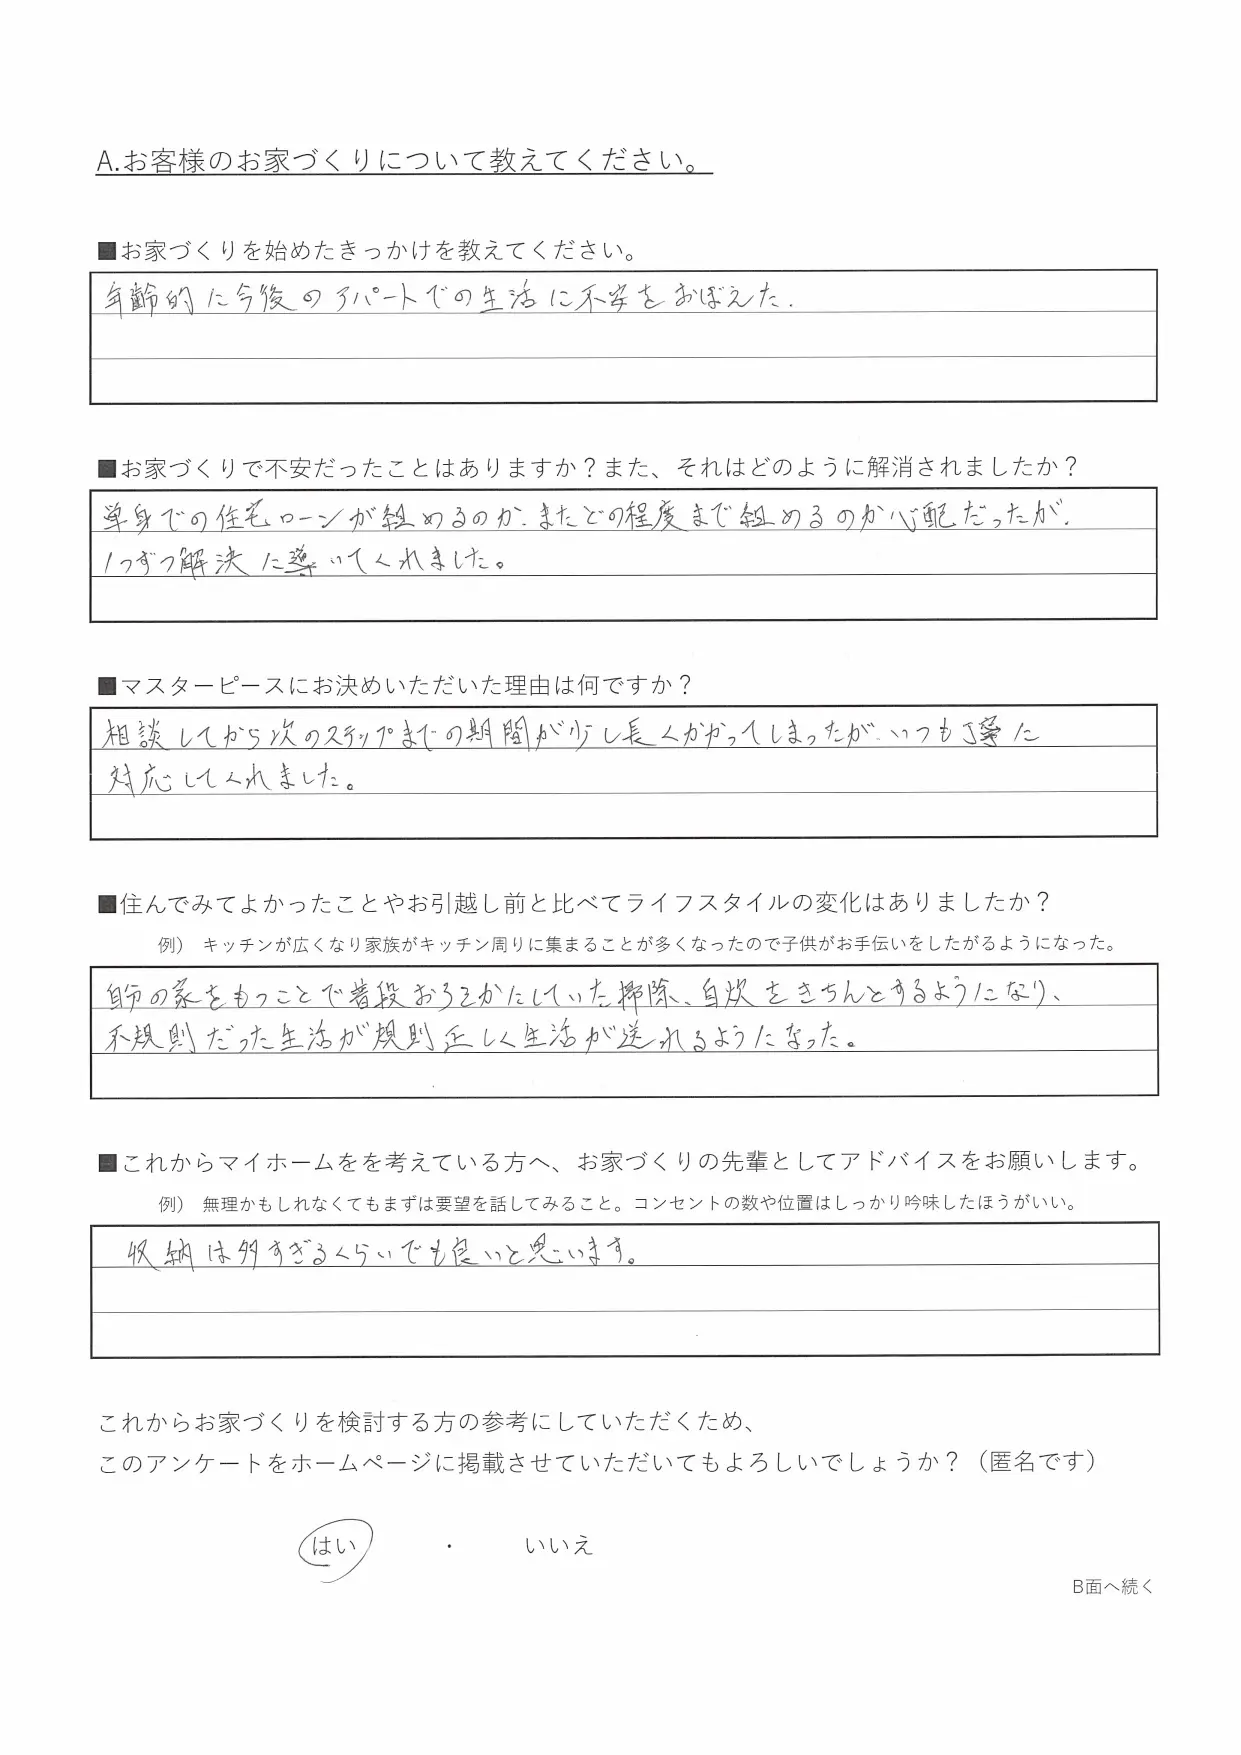 A.お客様のお家づくりについて教えてください。
■お家づくりを始めたきっかけを教えてください。
年齢的に今後のアパートでの生活に不安をおぼえた.
■お家づくりで不安だったことはありますか？また、それはどのように解消されましたか？
単身での住宅ローンが組めるのか.またどの程度まで組めるのか心配だったが.
1つずつ解決に導いてくれました。
■マスターピースにお決めいただいた理由は何ですか？
相談してから次のステップまでの期間が少し長くかかってしまったが.いつも丁寧に
対応してくれました。
■住んでみてよかったことやお引越し前と比べてライフスタイルの変化はありましたか？
例） キッチンが広くなり家族がキッチン周りに集まることが多くなったので子供がお手伝いをしたがるようになった。
自分の家をもつことで普段おろそかにしていた掃除、自炊をきちんとするようになり、
不規則だった生活が規則正しく生活が送れるようになった。
■これからマイホームをを考えている方へ、お家づくりの先輩としてアドバイスをお願いします。
例） 無理かもしれなくてもまずは要望を話してみること。コンセントの数や位置はしっかり吟味したほうがいい。
収納は多すぎるくらいでも良いと思います。
これからお家づくりを検討する方の参考にしていただくため、
このアンケートをホームページに掲載させていただいてもよろしいでしょうか？（匿名です）
はい ・ いいえ
B面へ続く